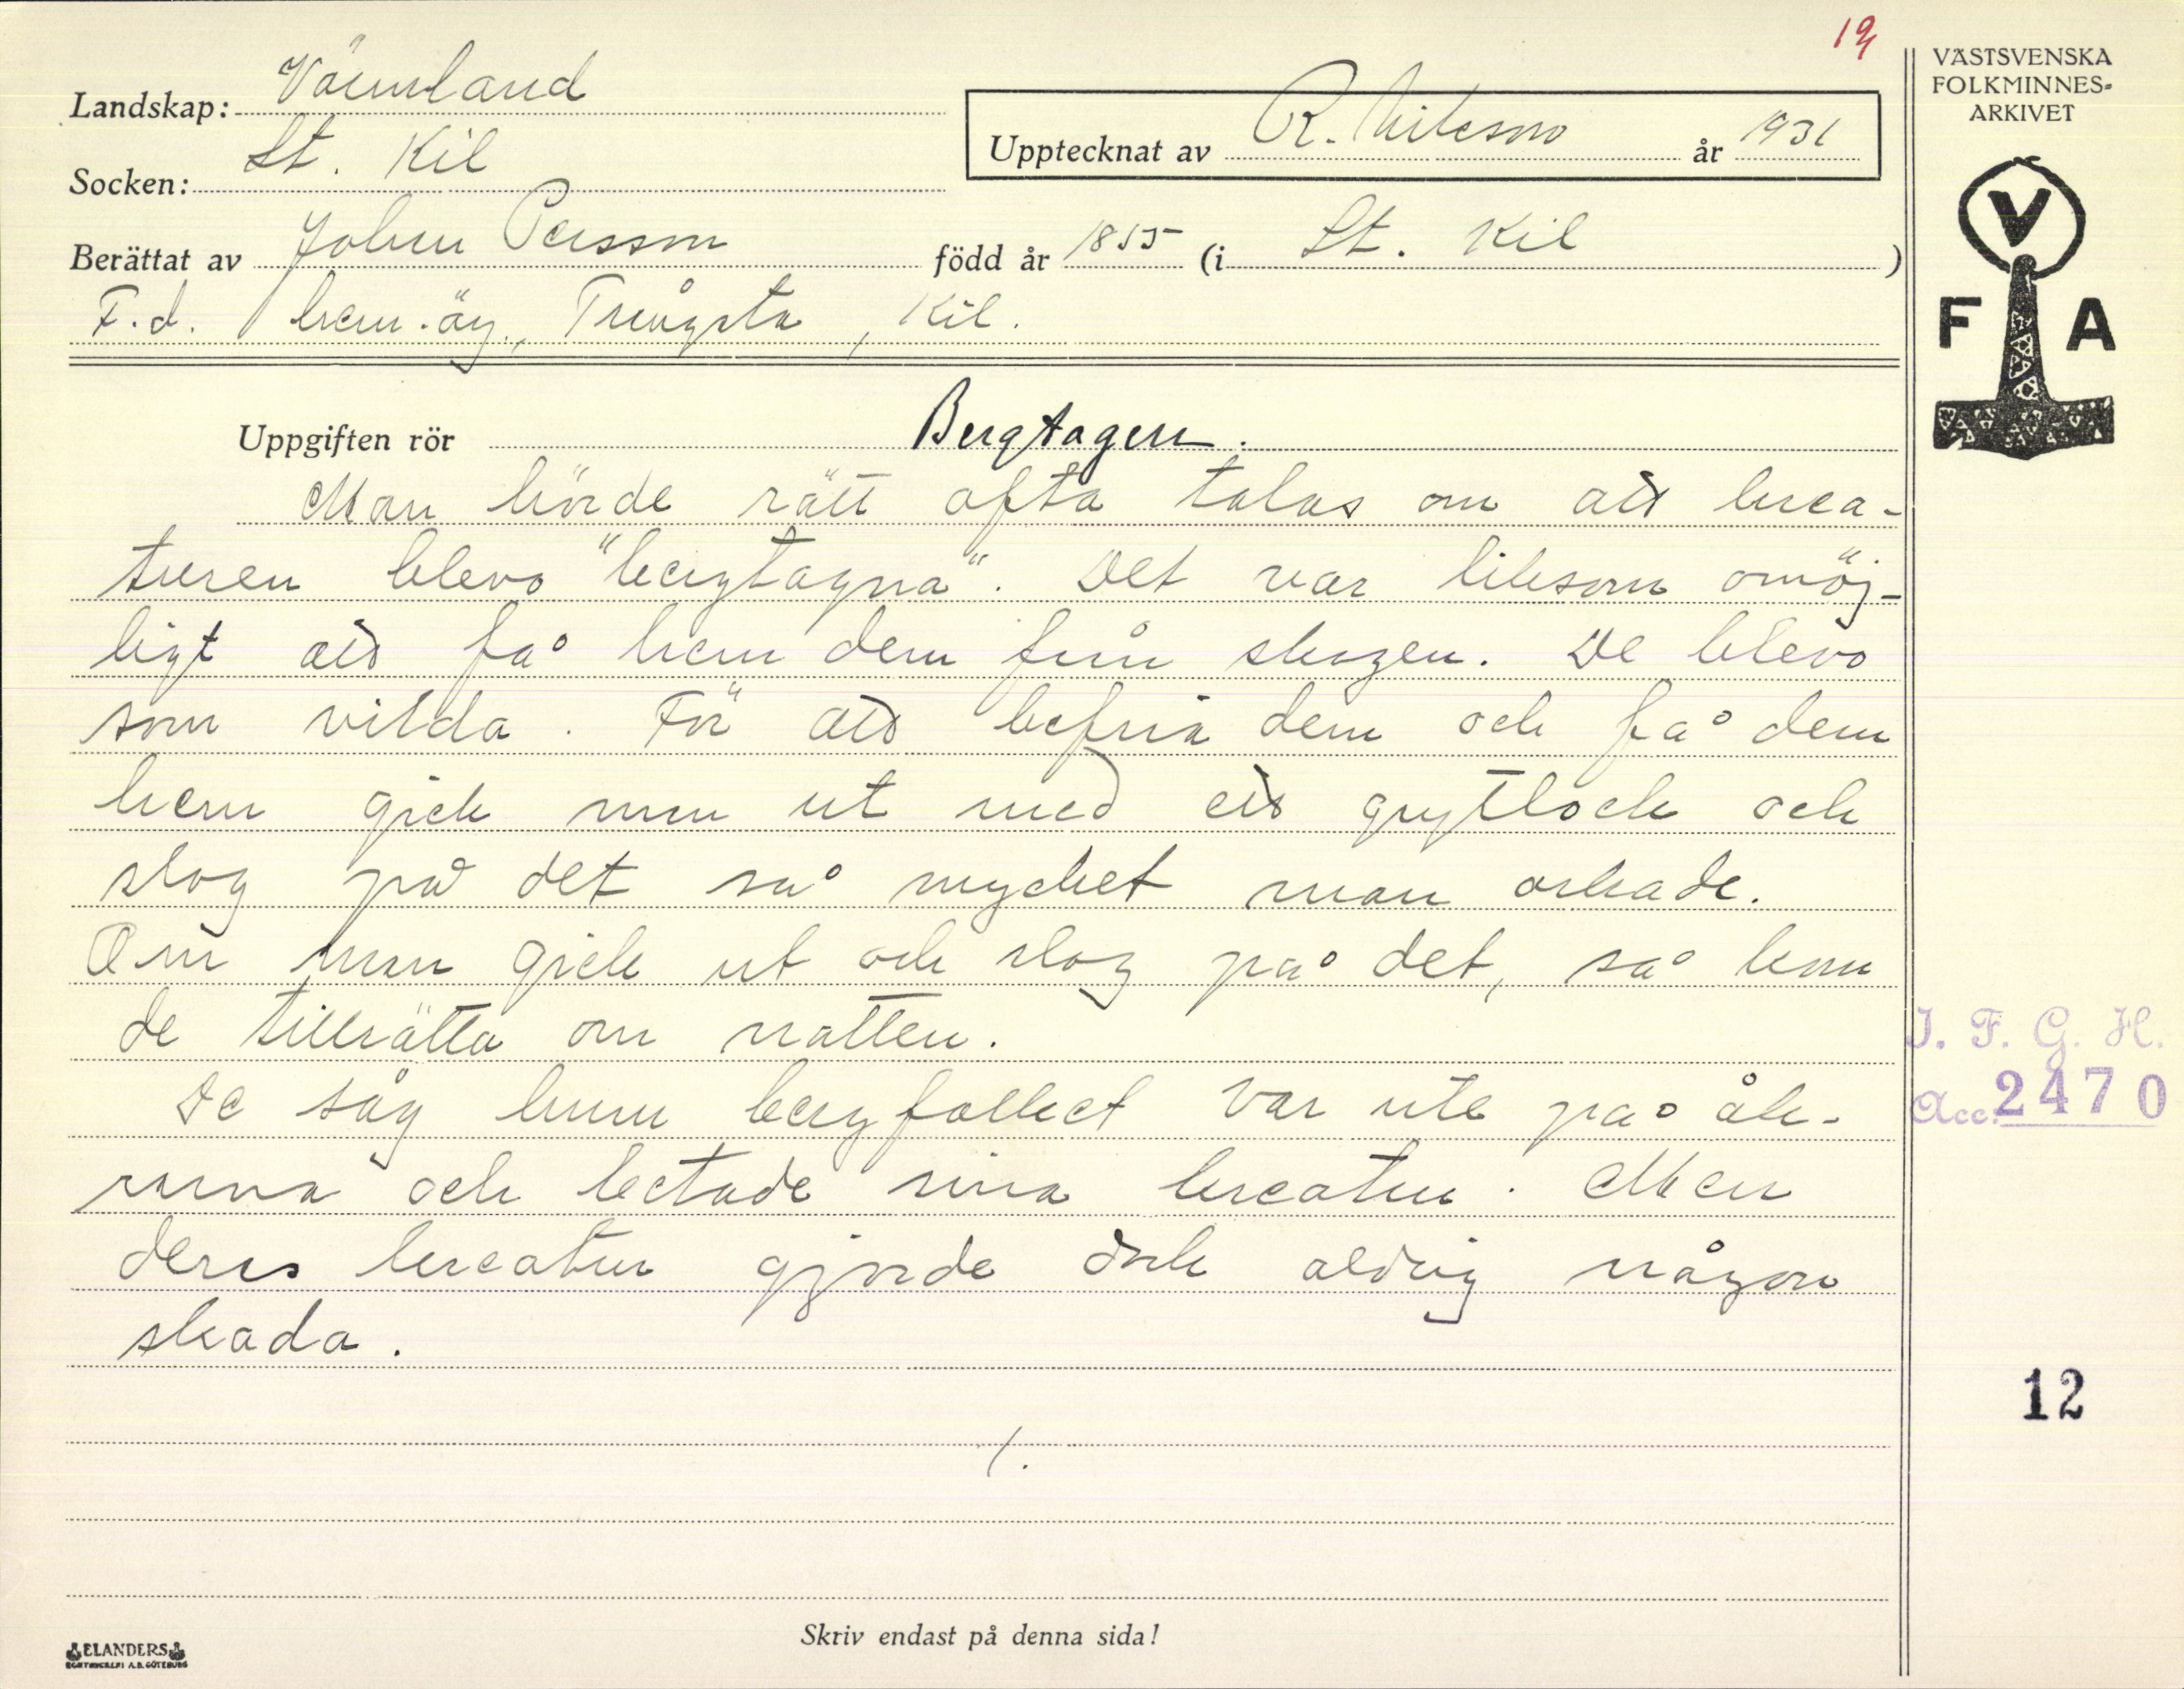 19
VÄSTSVENSKA
FOLKMINNES-
ARKIVET
Landskap: Värmland
Upptecknat av R. Nilsson år 1931
Socken: St. Kil
Berättat av Johan Persson född år 1855 (i St. Kil)
F.d. hem.äg., Kil.
V
F A
Uppgiften rör Bergtagen.
Man hörde rätt ofta talas om att krea-
turen blevo "bergtagna". Det var liksom omöj-
ligt att få hem dem från skogen. De blevo
som vilda. För att befria dem och få dem
hem gick man ut med ett grytlock och
slog på det så mycket man orkade.
Om man gick ut och slog på det, så kom
de tillrätta om natten.
De såg hur bergfolket var ute på åk-
rarna och betade sina kreatur. Men
deras kreatur gjorde dock aldrig någon
skada.
/.
J. F. G. H.
Acc. 2470
12
Skriv endast på denna sida!
ELANDERS
BOKTRYCKERI A.B. GÖTEBORG